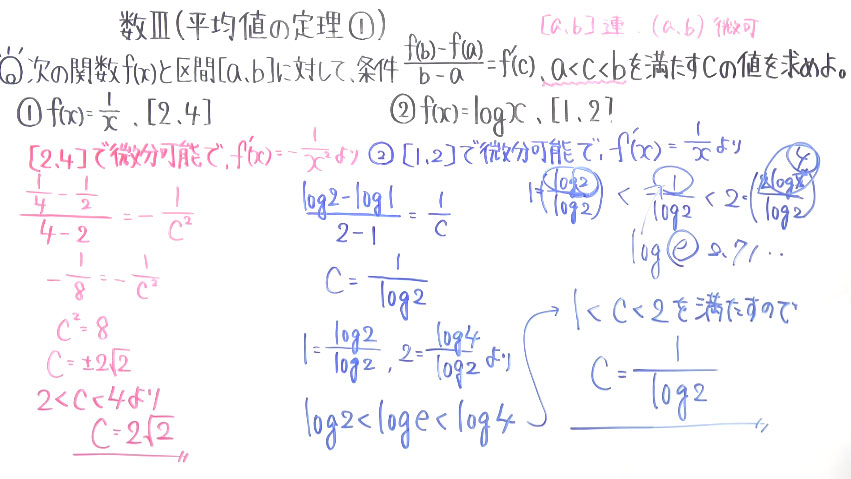 数Ⅲ(平均値の定理①)
[a,b]連.(a,b)微可
◎次の関数f(x)と区間[a,b]に対して、条件 (f(b)-f(a))/(b-a)=f'(c)、a<c<bを満たすCの値を求めよ。
① f(x)=1/x 、[2,4]
② f(x)=logx 、[1,2]
[2,4]で微分可能で,f'(x)=-1/x²より
(1/4-1/2)/(4-2)=-1/C²
-1/8=-1/C²
C²=8
C=±2√2
2<C<4より
C=2√2
② [1,2]で微分可能で,f'(x)=1/xより
(log2-log1)/(2-1)=1/C
C=1/log2
1=log2/log2 , 2=log4/log2 より
log2<loge<log4
1=(log2/log2) < 1/log2 < 2=(2log2/log2)
4
log e 2.71...
1<C<2を満たすので
C=1/log2